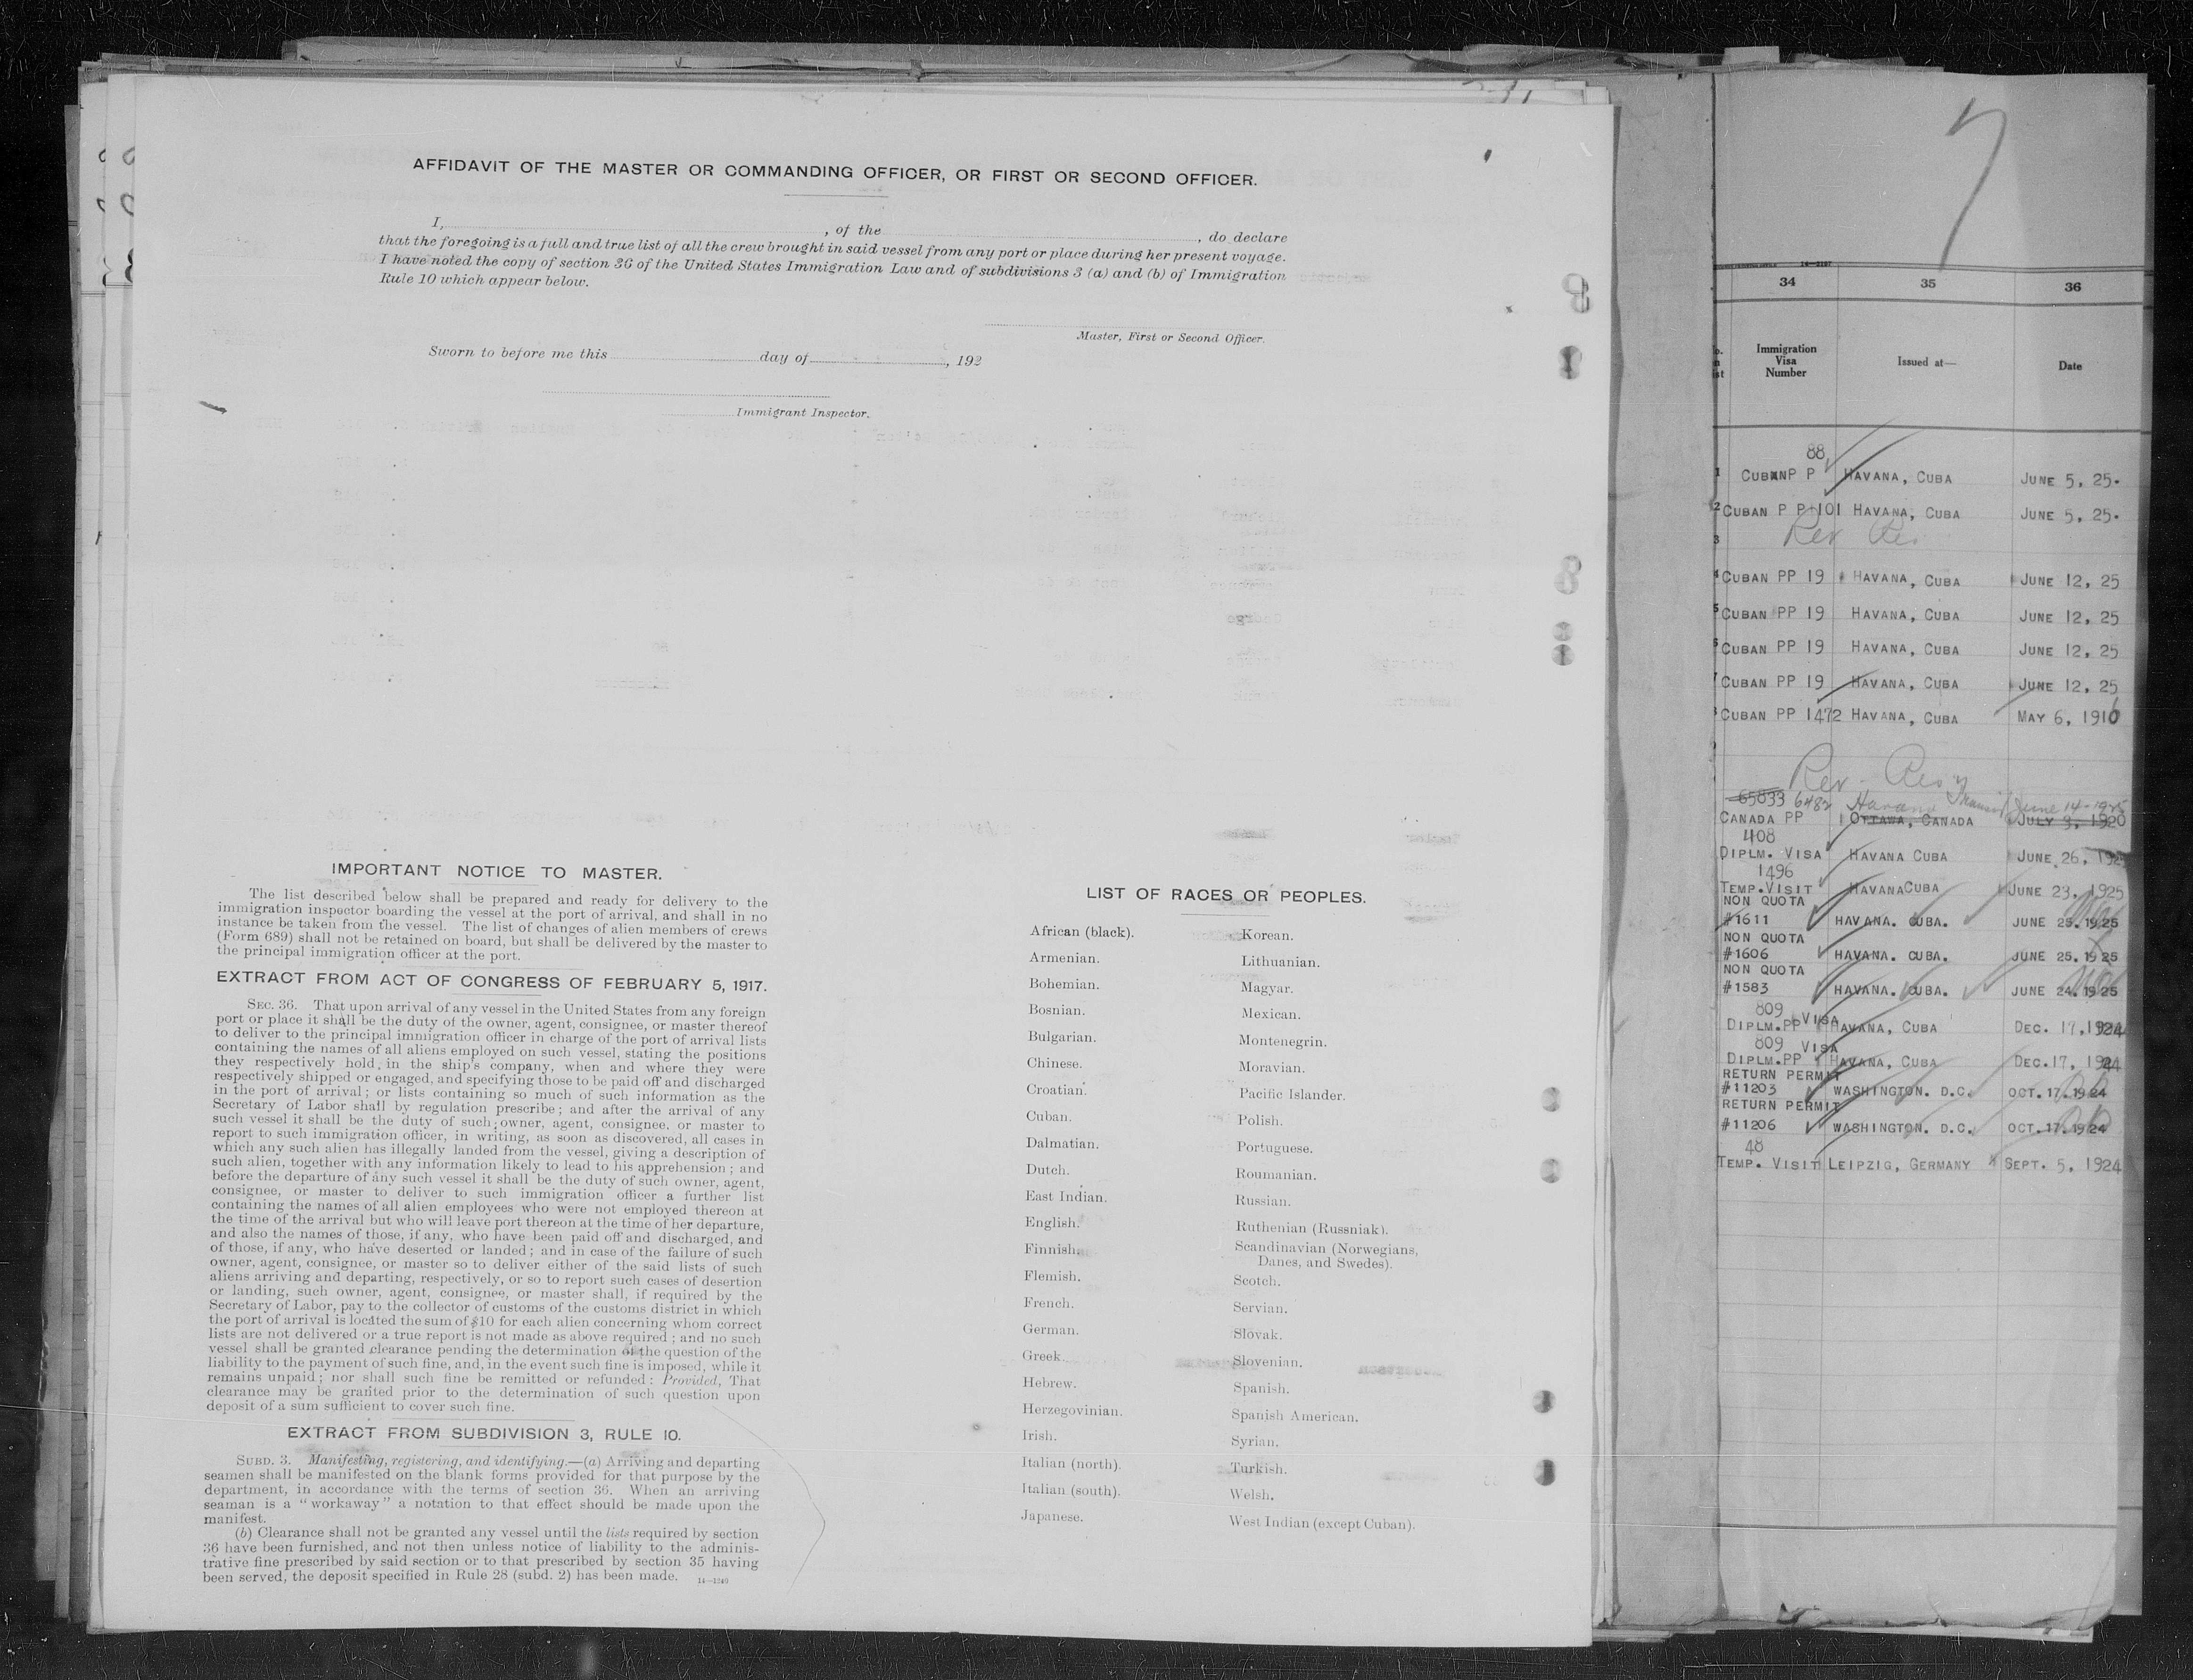 AFFIDAVIT OF THE MASTER OR COMMANDING OFFICER, OR FIRST OR SECOND OFFICER.
I, , of the , do declare
that the foregoing is a full and true list of all the crew brought in said vessel from any port or place during her present voyage.
I have noted the copy of section 36 of the United States Immigration Law and of subdivisions 3 (a) and (b) of Immigration
Rule 10 which appear below.
Master, First or Second Officer.
Sworn to before me this day of , 192
Immigrant Inspector.
IMPORTANT NOTICE TO MASTER.
The list described below shall be prepared and ready for delivery to the
immigration inspector boarding the vessel at the port of arrival, and shall in no
instance be taken from the vessel. The list of changes of alien members of crews
(Form 689) shall not be retained on board, but shall be delivered by the master to
the principal immigration officer at the port.
EXTRACT FROM ACT OF CONGRESS OF FEBRUARY 5, 1917.
SEC. 36. That upon arrival of any vessel in the United States from any foreign
port or place it shall be the duty of the owner, agent, consignee, or master thereof
to deliver to the principal immigration officer in charge of the port of arrival lists
containing the names of all aliens employed on such vessel, stating the positions
they respectively hold in the ship's company, when and where they were
respectively shipped or engaged, and specifying those to be paid off and discharged
in the port of arrival; or lists containing so much of such information as the
Secretary of Labor shall by regulation prescribe; and after the arrival of any
such vessel it shall be the duty of such owner, agent, consignee, or master to
report to such immigration officer, in writing, as soon as discovered, all cases in
which any such alien has illegally landed from the vessel, giving a description of
such alien, together with any information likely to lead to his apprehension; and
before the departure of any such vessel it shall be the duty of such owner, agent,
consignee, or master to deliver to such immigration officer a further list
containing the names of all alien employees who were not employed thereon at
the time of the arrival but who will leave port thereon at the time of her departure,
and also the names of those, if any, who have been paid off and discharged, and
of those, if any, who have deserted or landed; and in case of the failure of such
owner, agent, consignee, or master so to deliver either of the said lists of such
aliens arriving and departing, respectively, or so to report such cases of desertion
or landing, such owner, agent, consignee, or master shall, if required by the
Secretary of Labor, pay to the collector of customs of the customs district in which
the port of arrival is located the sum of $10 for each alien concerning whom correct
lists are not delivered or a true report is not made as above required; and no such
vessel shall be granted clearance pending the determination of the question of the
liability to the payment of such fine, and, in the event such fine is imposed, while it
remains unpaid; nor shall such fine be remitted or refunded: Provided, That
clearance may be granted prior to the determination of such question upon
deposit of a sum sufficient to cover such fine.
EXTRACT FROM SUBDIVISION 3, RULE 10.
SUBD. 3. Manifesting, registering, and identifying.—(a) Arriving and departing
seamen shall be manifested on the blank forms provided for that purpose by the
department, in accordance with the terms of section 36. When an arriving
seaman is a "workaway" a notation to that effect should be made upon the
manifest.
(b) Clearance shall not be granted any vessel until the lists required by section
36 have been furnished, and not then unless notice of liability to the adminis-
trative fine prescribed by said section or to that prescribed by section 35 having
been served, the deposit specified in Rule 28 (subd. 2) has been made. 14—1240
LIST OF RACES OR PEOPLES.
African (black).
Armenian.
Bohemian.
Bosnian.
Bulgarian.
Chinese.
Croatian.
Cuban.
Dalmatian.
Dutch.
East Indian.
English.
Finnish.
Flemish.
French.
German.
Greek.
Hebrew.
Herzegovinian.
Irish.
Italian (north).
Italian (south).
Japanese.
Korean.
Lithuanian.
Magyar.
Mexican.
Montenegrin.
Moravian.
Pacific Islander.
Polish.
Portuguese.
Roumanian.
Russian.
Ruthenian (Russniak).
Scandinavian (Norwegians,
Danes, and Swedes).
Scotch.
Servian.
Slovak.
Slovenian.
Spanish.
Spanish American.
Syrian.
Turkish.
Welsh.
West Indian (except Cuban).
7
34 35 36
Immigration
Visa
Number
Issued at—
Date
88
CUBAN P P HAVANA, CUBA JUNE 5, 25.
2 CUBAN P P 101 HAVANA, CUBA JUNE 5, 25.
3 Rev Res
4 CUBAN PP 19 HAVANA, CUBA JUNE 12, 25
5 CUBAN PP 19 HAVANA, CUBA JUNE 12, 25
CUBAN PP 19 HAVANA, CUBA JUNE 12, 25
CUBAN PP 19 HAVANA, CUBA JUNE 12, 25
CUBAN PP 1472 HAVANA, CUBA MAY 6, 1916
Rev - Res
65833 6482 Havana Transit June 14-1925
CANADA PP OTTAWA, CANADA JULY 9, 1920
408
DIPLM. VISA HAVANA CUBA JUNE 26, 192
1496
TEMP. VISIT HAVANA CUBA JUNE 23, 1925
NON QUOTA
#1611 HAVANA. CUBA. JUNE 25. 1925
NON QUOTA
#1606 HAVANA. CUBA. JUNE 25. 1925
NON QUOTA
#1583 HAVANA. CUBA. JUNE 24. 1925
809 VISA
DIPLM.PP HAVANA, CUBA DEC. 17, 1924
809 VISA
DIPLM.PP HAVANA, CUBA DEC. 17, 1924
RETURN PERMIT
#11203 WASHINGTON. D.C. OCT. 17. 1924
RETURN PERMIT
#11206 WASHINGTON. D.C. OCT. 17. 1924
48
TEMP. VISIT LEIPZIG, GERMANY SEPT. 5, 1924